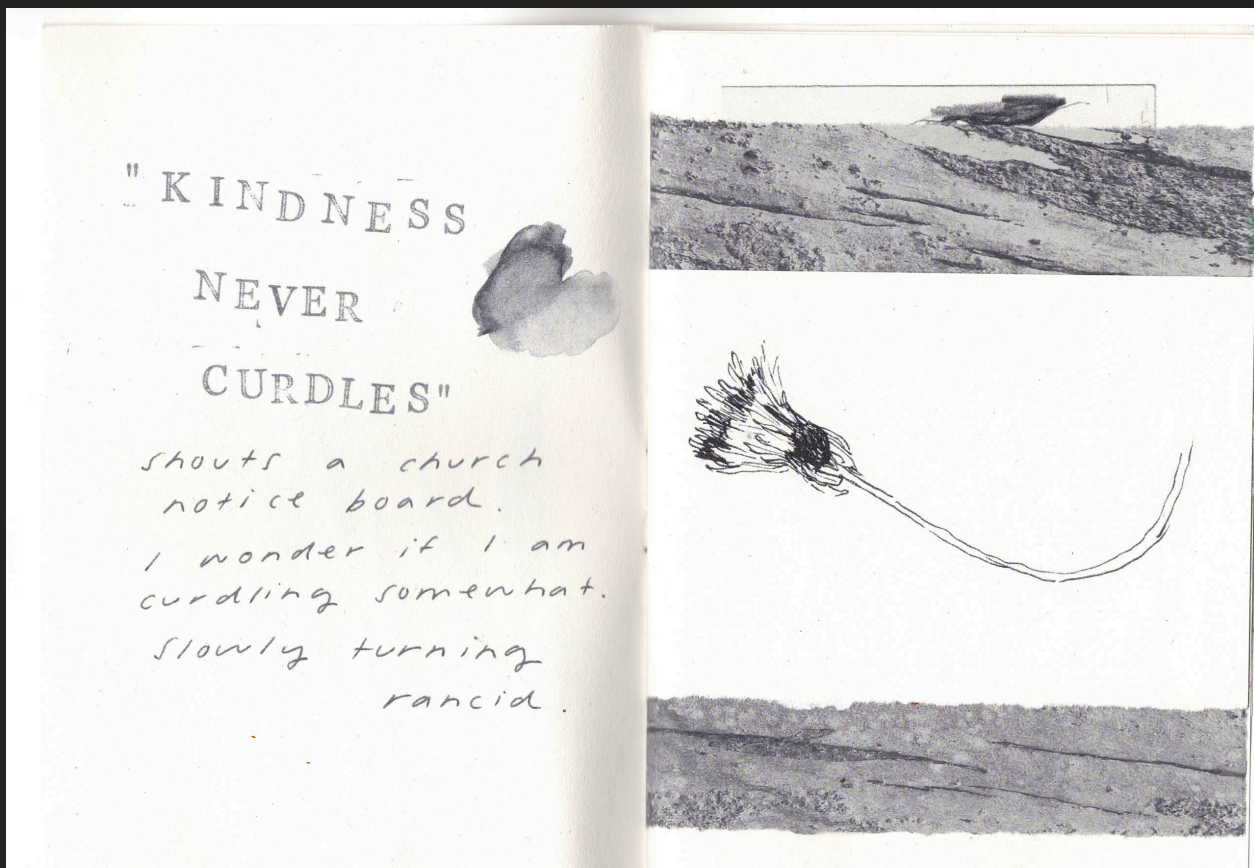 "KINDNESS
NEVER
CURDLES"
shouts a church
notice board.
I wonder if I am
curdling somewhat.
slowly turning
rancid.